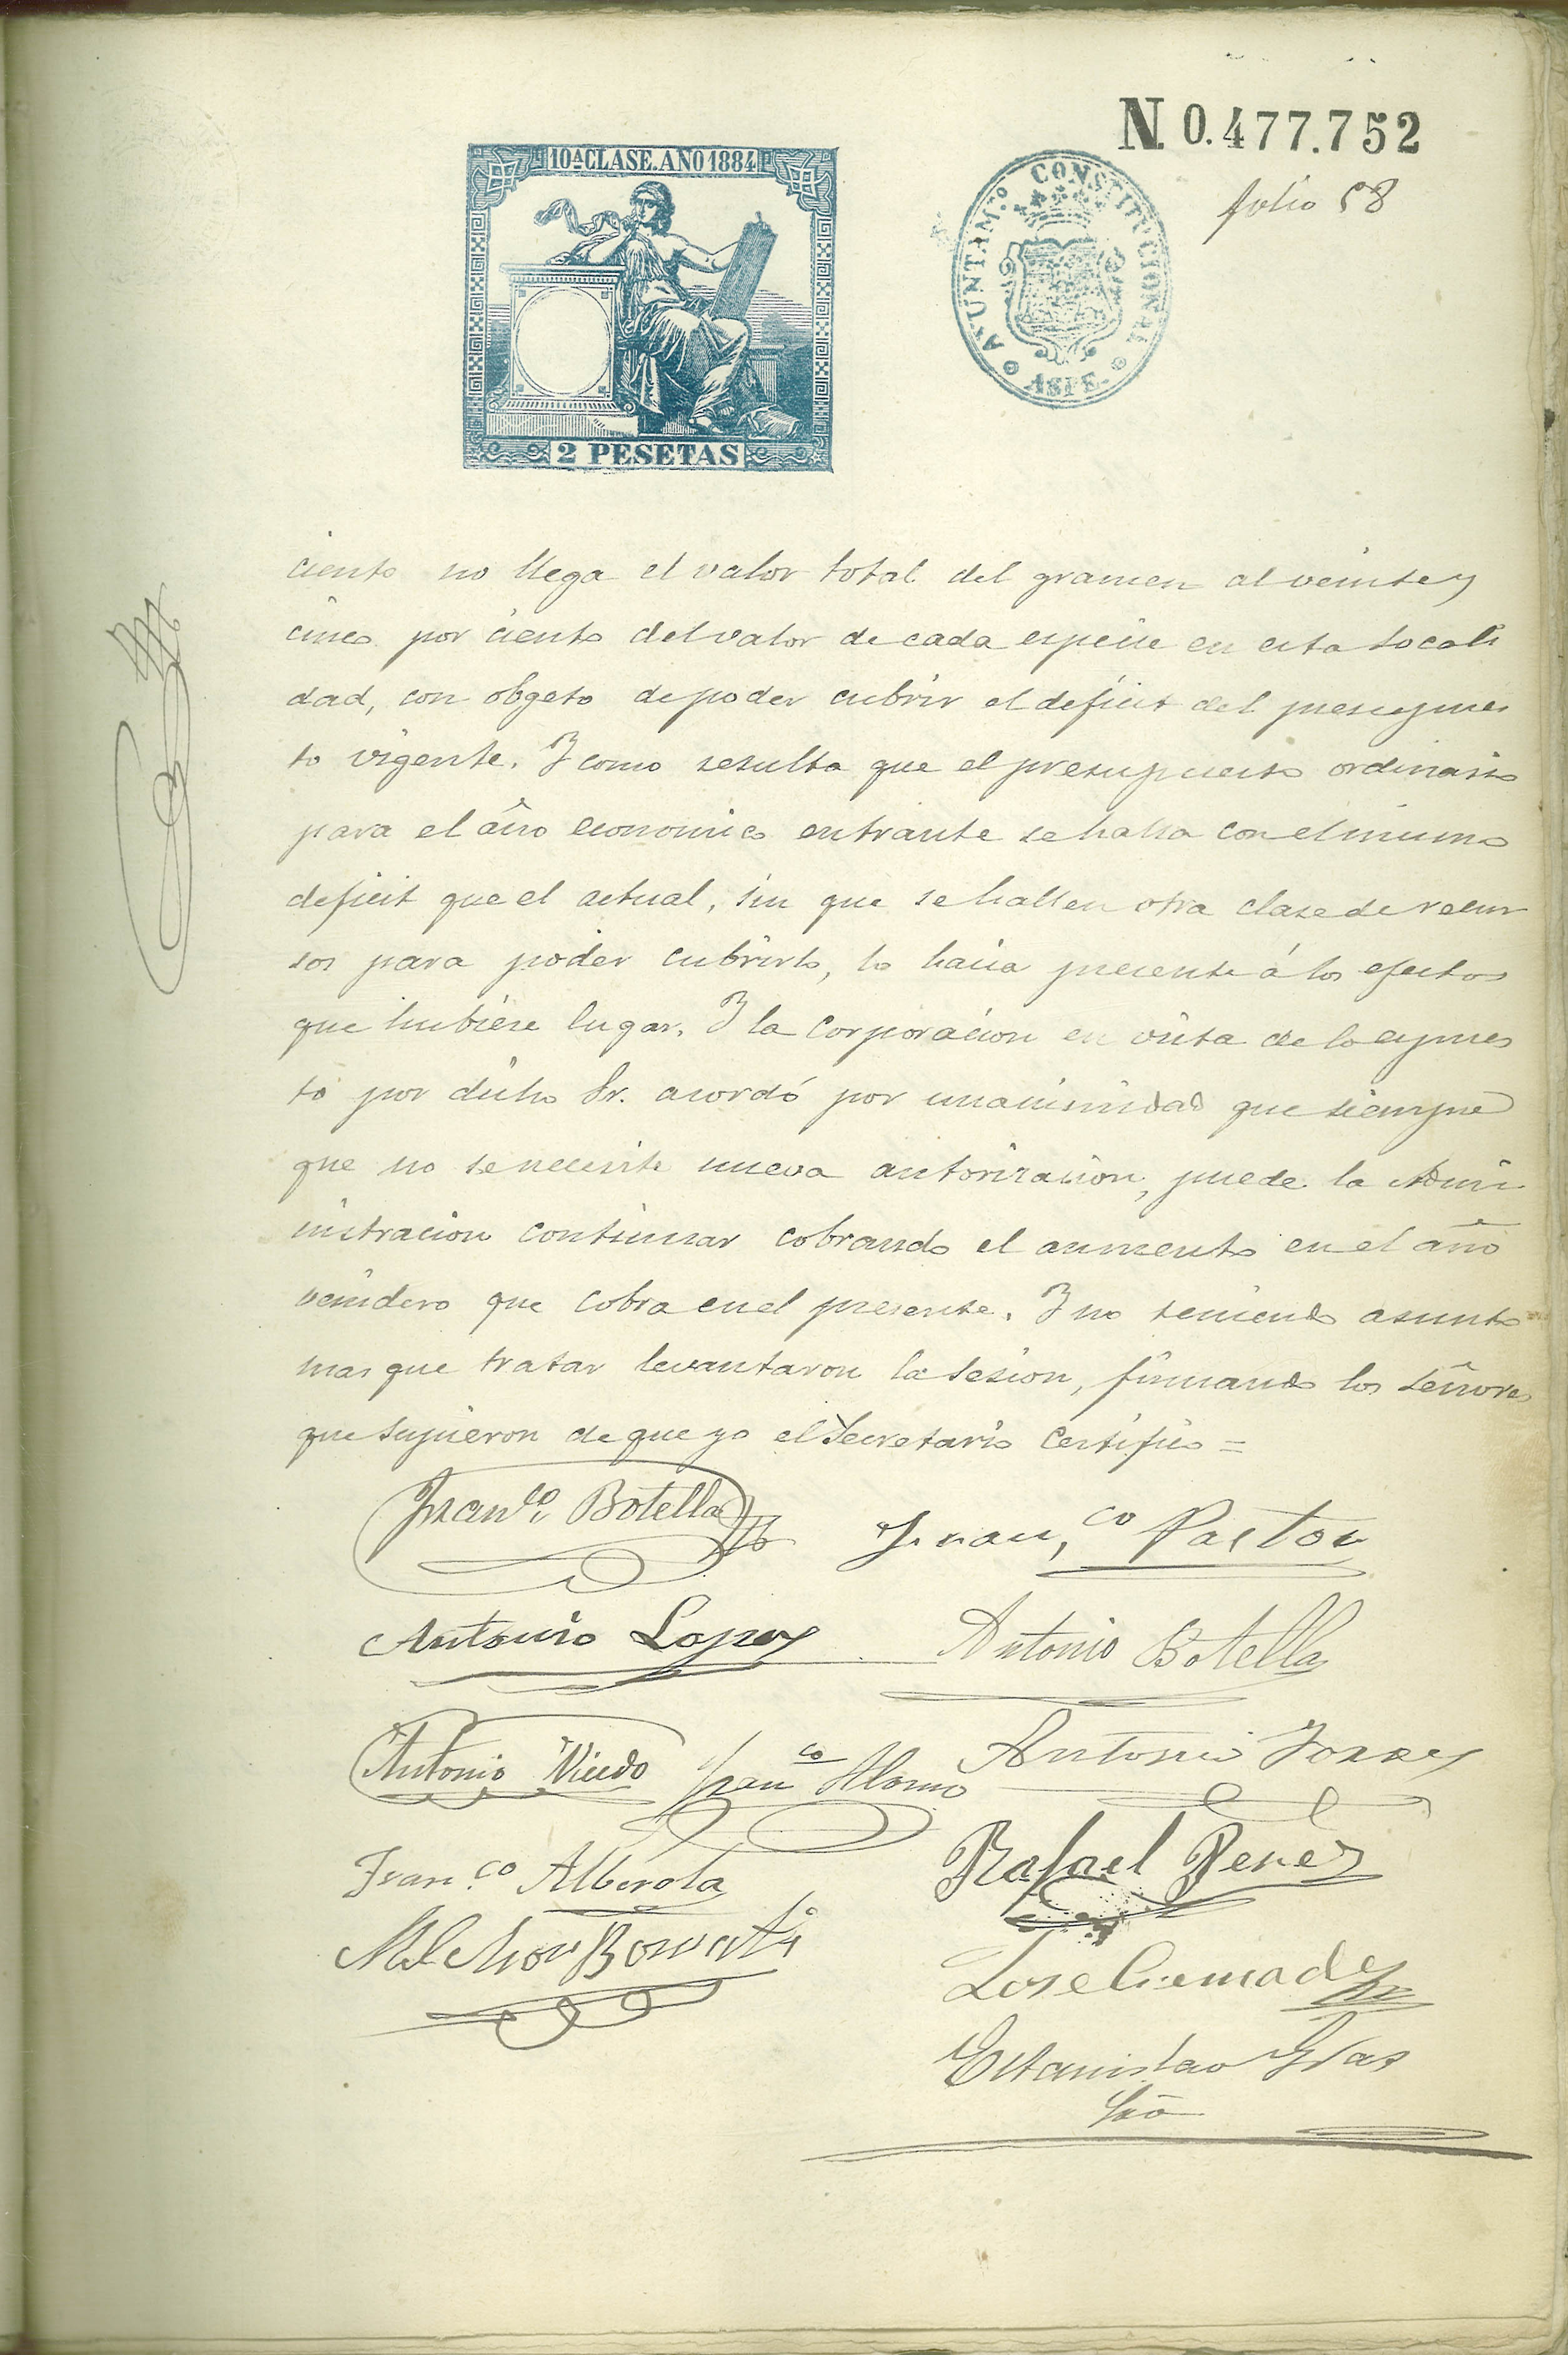 N. 0.477.752
folio 58
10ª CLASE. AÑO 1884
AYUNTAM.TO CONSTITUCIONAL
ASPE.
2 PESETAS
ciento no llega el valor total del gramen al veinte y
cinco por ciento del valor de cada especie en esta locali
dad, con obgeto de poder cubrir el deficit del presupues
to vigente. Y como resulta que el presupuesto ordinario
para el año economico entrante se halla con el mismo
deficit que el actual, sin que se hallen otra clase de recur
sos para poder cubrirlo, lo hacia presente á los efectos
que hubiere lugar. Y la Corporacion en vista de lo espues
to por dicho Sr. acordó por unanimidad que siempre
que no se necesite nueva autorizacion, puede la Admi
nistracion continuar cobrando el aumento en el año
venidero que cobra en el presente. Y no teniendo asunto
mas que tratar levantaron la sesion, firmando los señores
que supieron de que yo el Secretario Certifico =
Fran.co Botella
Fran,co Pastor
Antonio Lopez
Antonio Botella
Antonio Vicedo
Fran.co Alonso
Antonio Torres
Fran.co Alberola
Rafael Perez
Melchor
Jose Cremades
Estanislao Gras
Srio